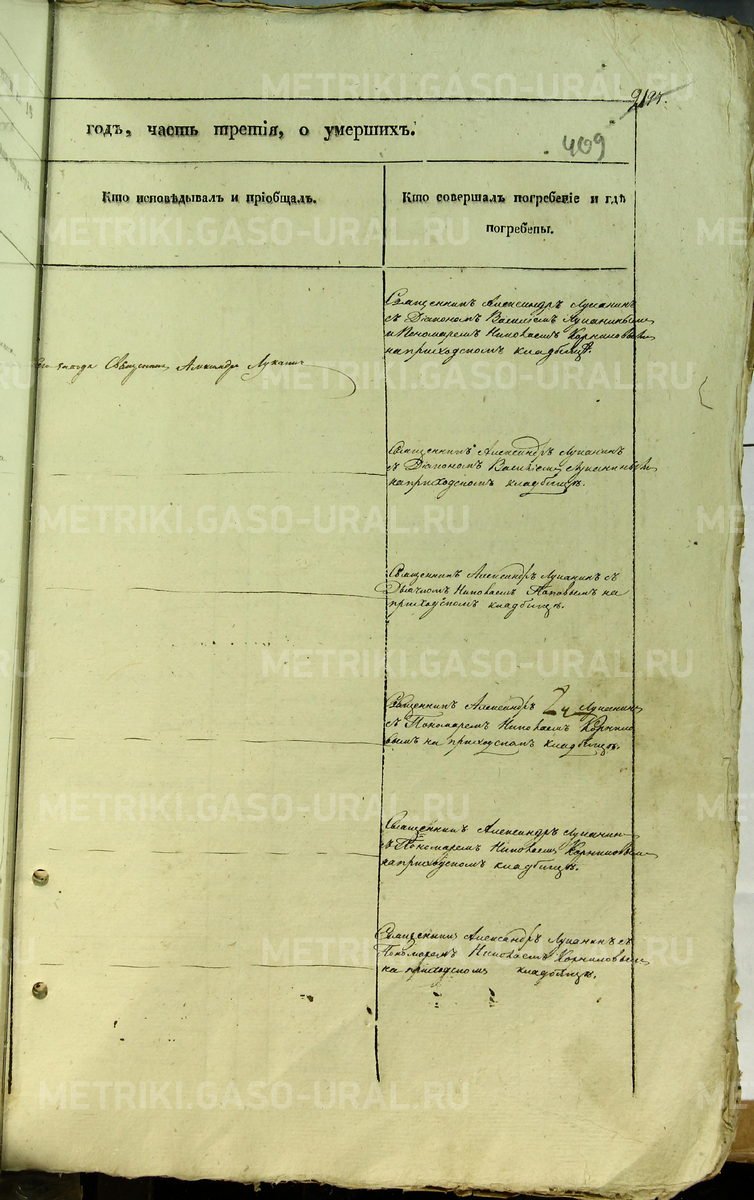 METRIKI.GASO-URAL.RU
годъ, часть третія, о умершихъ.
409
Кто исповѣдывалъ и пріобщалъ.
Кто совершалъ погребеніе и гдѣ
погребены.
Священникъ Александръ Луканинъ
съ Діакономъ Василіемъ Луканинымъ
и Пономаремъ Николаемъ Корниловымъ
на приходскомъ кладбищѣ.
Священникъ Александръ Лукани
Священникъ Александръ Луканинъ
съ Діакономъ Василіемъ Луканинымъ
на приходскомъ кладбищѣ.
METRIKI.GASO-URAL.RU
Священникъ Александръ Луканинъ съ
Дьячкомъ Николаемъ Поповымъ на
приходскомъ кладбищѣ.
METRIKI.GASO-URAL.RU
Священникъ Александръ Луканинъ
съ Пономаремъ Николаемъ Корнило
вымъ на приходскомъ кладбищѣ.
METRIKI.GASO-URAL.RU
Священникъ Александръ Луканинъ
съ Пономаремъ Николаемъ Корниловымъ
на приходскомъ кладбищѣ.
Священникъ Александръ Луканинъ съ
Пономаремъ Николаемъ Корниловымъ
на приходскомъ кладбищѣ.
METRIKI.GASO-URAL.RU
METRIKI.GASO-URAL.RU